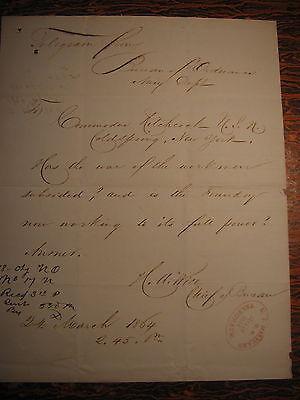 Telegram
Bureau of Ordnance
Navy Dept
To
Commodore Hitchcock U.S.N.
Cold Spring, New York.
Has the war of the workmen
subsided? and is the Foundry
now working to its full power?
Answer.
H. A. Wise
Chief of Bureau
24 March 1864
2.45 Pm